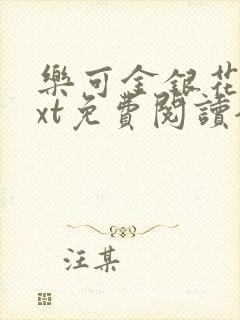 樂可金銀花
xt免費閱讀
汪某